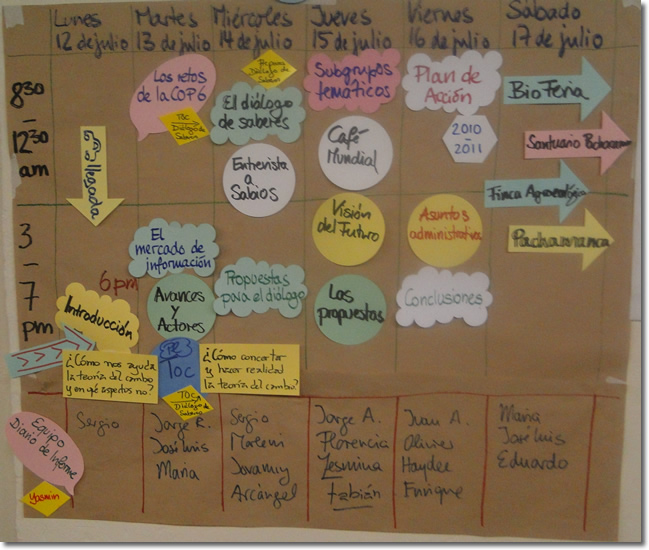 Lunes
12 de julio
Martes
13 de julio
Miércoles
14 de julio
Jueves
15 de julio
Viernes
16 de julio
Sábado
17 de julio
8:30
–
12:30
am
llegada
Los retos
de la COP6
TOC
Diálogo de
Sabios
Prepara
Diálogo de
El diálogo
de saberes
Entrevista
a
Sabios
Subgrupos
temáticos
Café
Mundial
Plan de
Acción
2010
–
2011
BioFeria
Santuario
Finca Agroecológica
Pachamanca
3
–
7
pm
6 pm
Introducción
El
mercado de
información
Avances
y
Actores
Propuestas
para el diálogo
Visión
del Futuro
Las
propuestas
Asuntos
administrativa
Conclusiones
¿Cómo nos ayuda
la teoría del cambo
y en qué aspectos no?
TOC
¿Cómo concertar
y hacer realidad
la teoría del cambo?
TOC
Diálogo de
Equipo
Diario de Informe
Yasmin
Sergio
Jorge R.
José Luis
Maria
Sergio
Marleni
Arcángel
Jorge A.
Florencia
Yesmina
Fabián
Juan A.
Oliver
Haydee
Enrique
Maria
José Luis
Eduardo